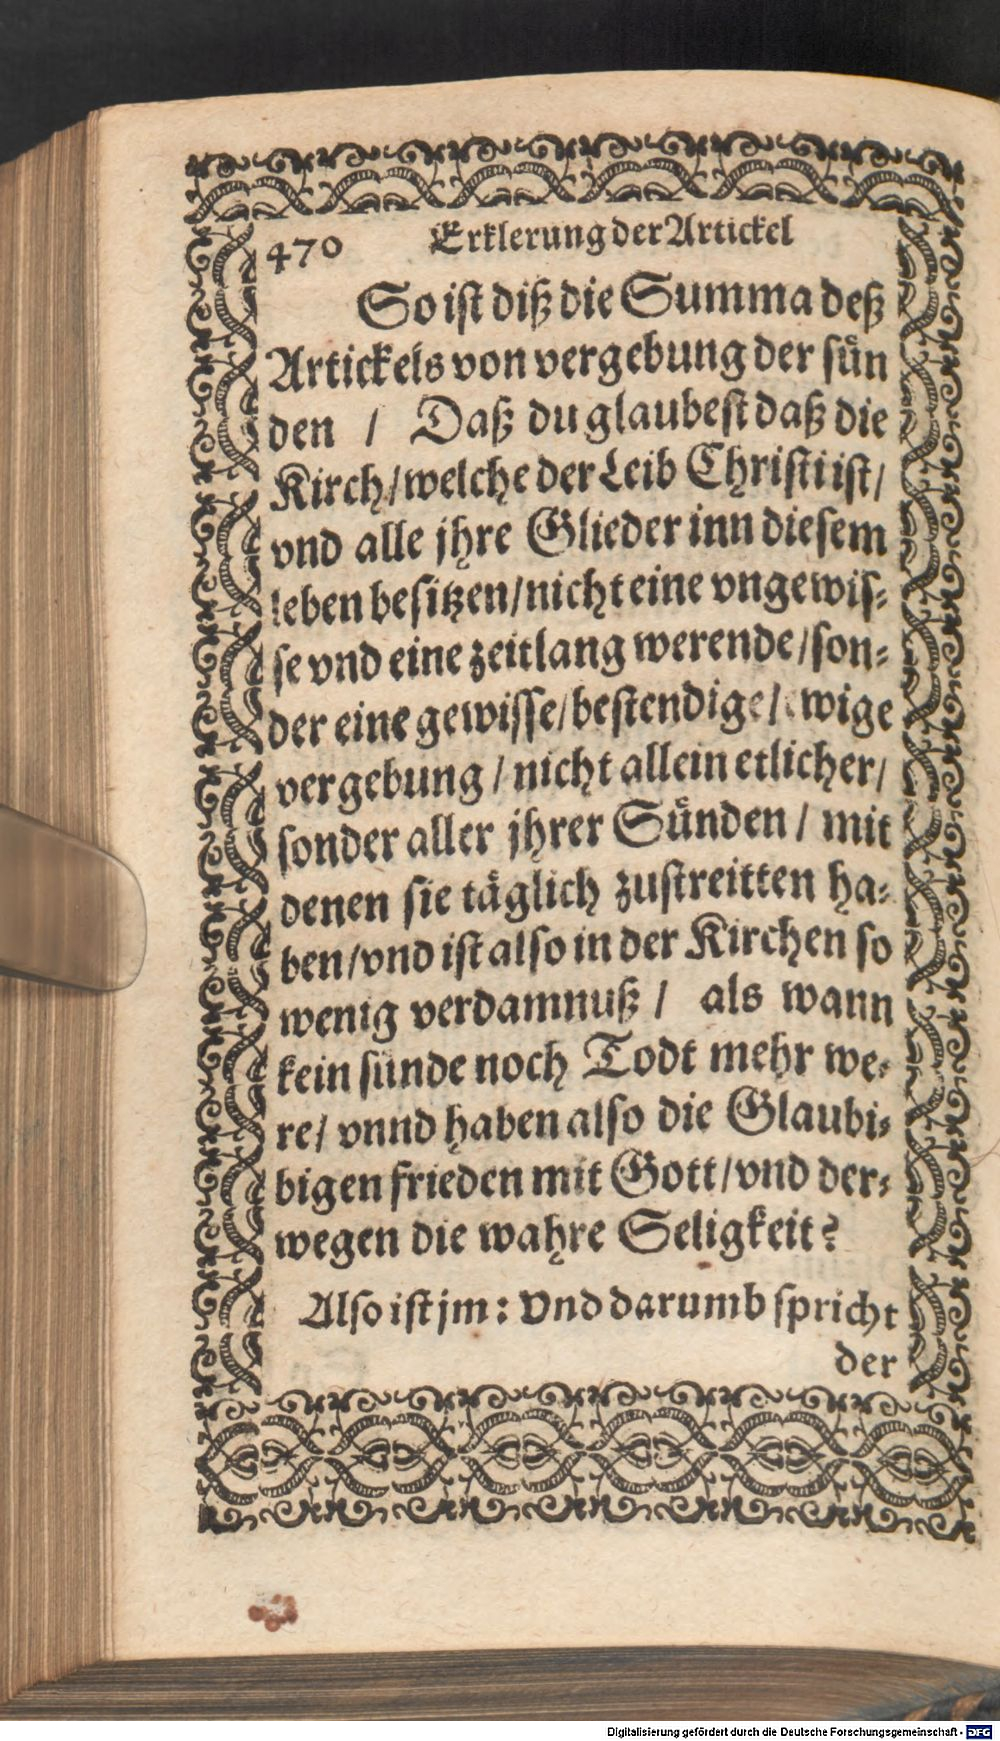 470 Erklerung der Artickel
So ist diß die Summa deß
Artickels von vergebung der sün
den / Daß du glaubest daß die
Kirch / welche der Leib Christi ist /
vnd alle jhre Glieder inn diesem
leben besitzen / nicht eine vngewis-
se vnd eine zeitlang werende / son-
der eine gewisse / bestendige / ewige
vergebung / nicht allein etlicher /
sonder aller jhrer Sünden / mit
denen sie täglich zustreitten ha-
ben / vnd ist also in der Kirchen so
wenig verdamnuß / als wann
kein sünde noch Todt mehr we-
re / vnnd haben also die Glaubi-
bigen frieden mit Gott / vnd der-
wegen die wahre Seligkeit?
Also ist jm: Vnd darumb spricht
der
Digitalisierung gefördert durch die Deutsche Forschungsgemeinschaft - DFG